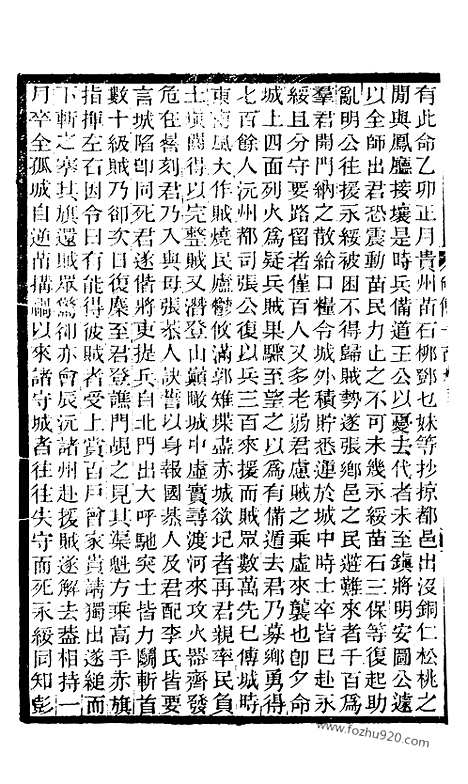 有此命乙卯正月貴州苗石柳鄧乜妹等抄掠都邑出沒銅仁松桃之
閒與鳳廳接壤是時兵備道王公以憂去代者未至鎭將明安圖公遠
以全師出君恐震動苗民力止之不可未幾永綏苗石三保等復起助
亂明公往援永綏被困不得歸賊勢遂張鄉邑之民避難來者千百爲
羣君開門納之散給口糧令城外積貯悉運於城中時士卒皆已赴永
綏且分守要路留者僅百人又多老弱君慮賊之乘虛來襲也卽夕命
城上四面列火爲疑兵賊果驟至望之以爲有備遁去君乃募鄉勇得
七百餘人沅州都司張公復以兵三百來援而賊眾數萬先已傅城時
東南風大作賊燒民廬鬱攸滿郭雉堞盡赤城欲圮者再君親率民負
土填闕得以完整賊又潛登山巔瞰城中虛實尋渡河來攻火器齊發
危在晷刻君乃入與母張恭人訣誓以身報國恭人及君配李氏皆要
言城陷卽同死君遂偕將吏提兵自北門出大呼馳突士皆力鬭斬首
數十級賊乃卻次日復麇至君登譙門覘之見其渠魁方乘高手赤旗
指揮左右因令曰有能得彼賊者受上賞百戶曾家貴請獨出遂縋而
下斬之搴其旗還賊眾驚卻亦會辰沅諸州赴援賊遂解去葢相持一
月卒全孤城自逆苗搆嗣以來諸守城者往往失守而死永綏同知彭
www.fozhu920.com